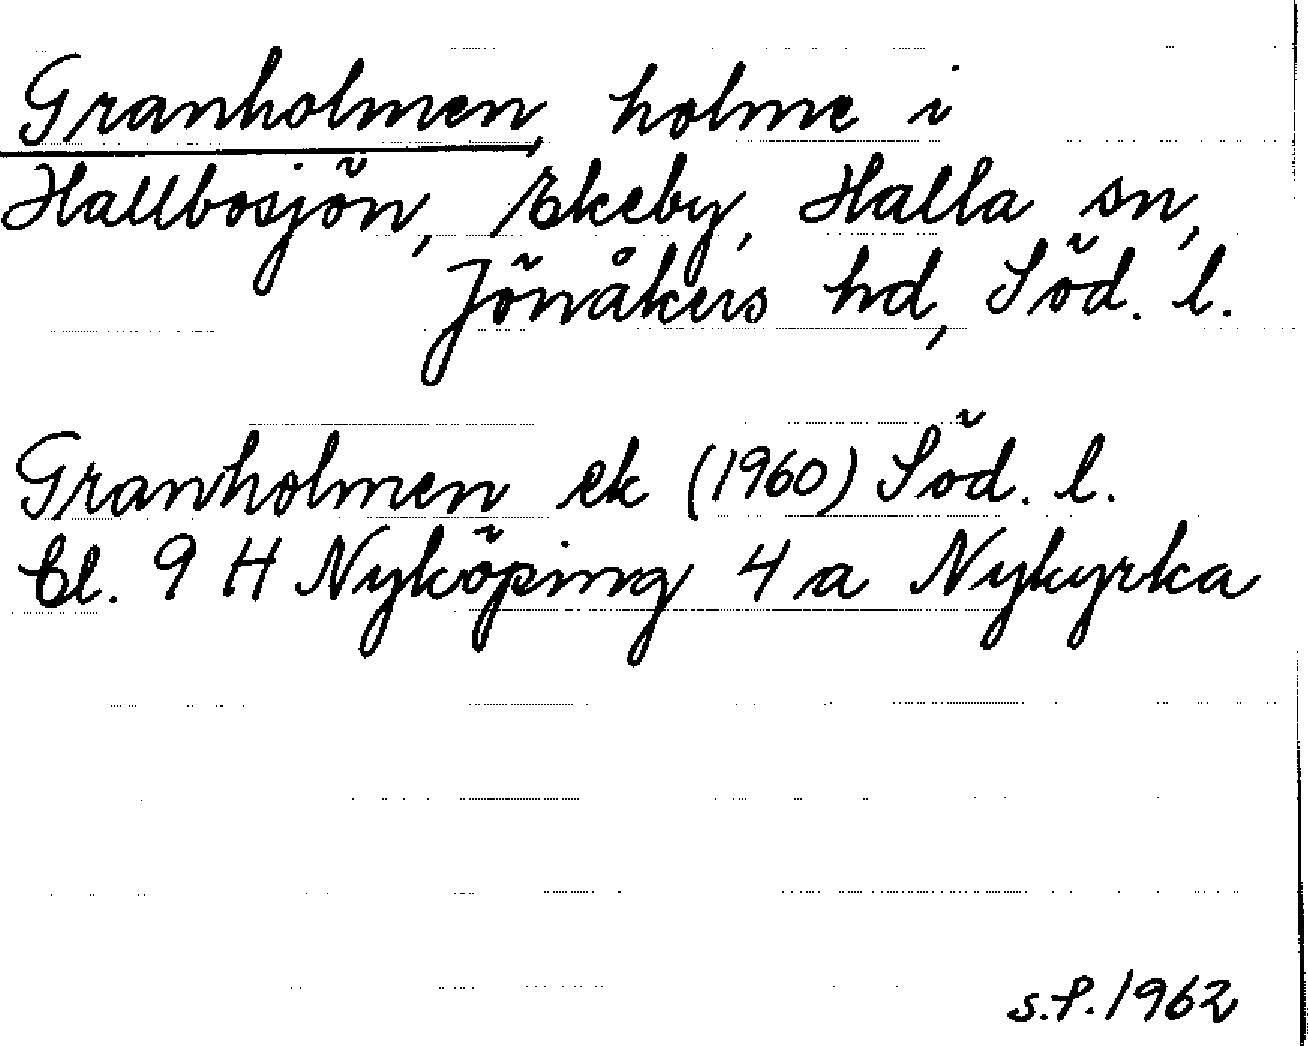 Granholmen, holme i
Hallbosjön, Ekeby, Halla sn,
Jönåkers hd, Söd. l.
Granholmen ek (1960) Söd. l.
bl. 9 H Nyköping 4 a Nykyrka
s.P. 1962